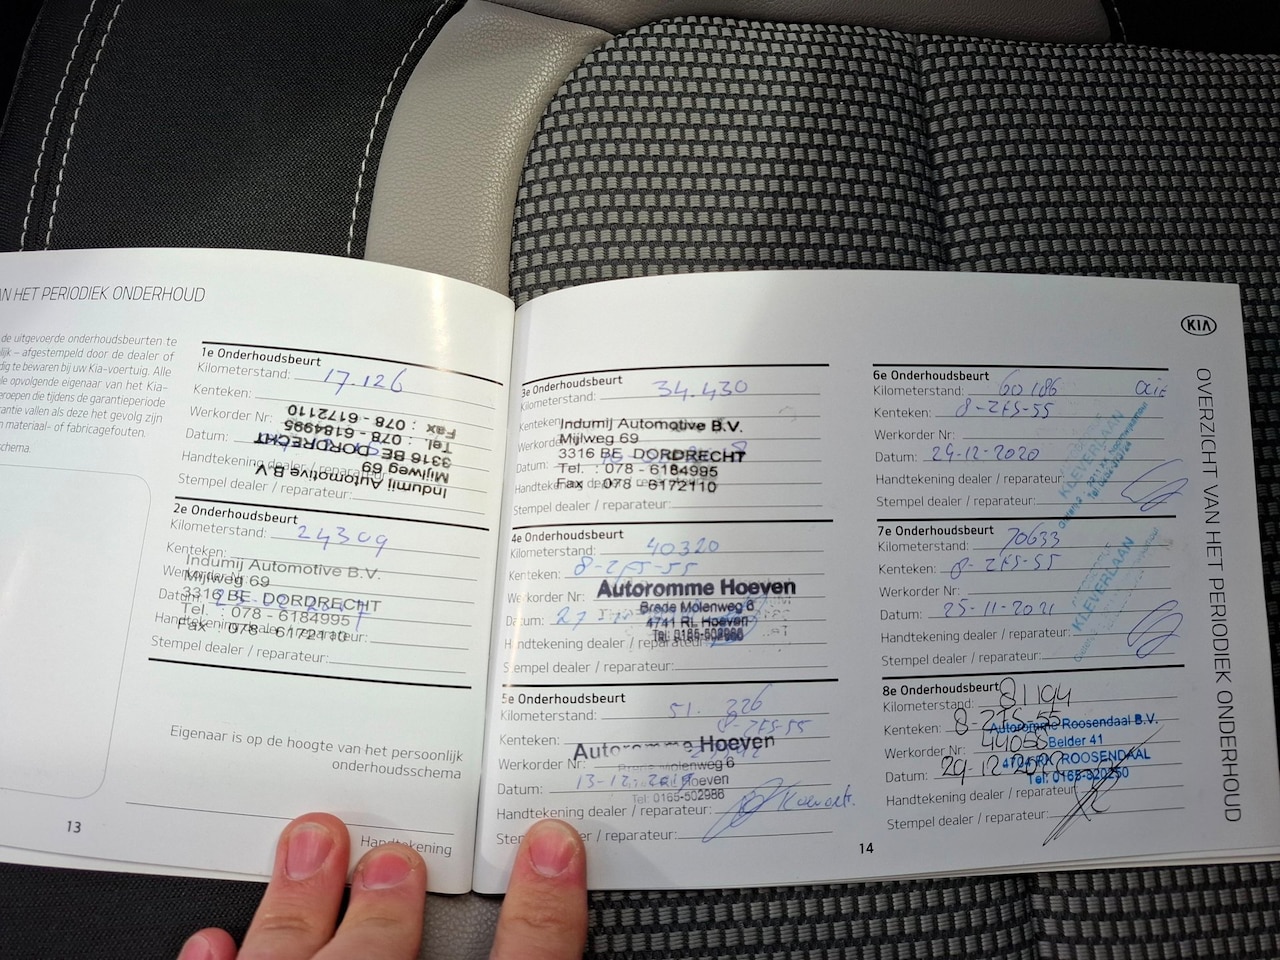 AN HET PERIODIEK ONDERHOUD
de uitgevoerde onderhoudsbeurten te
lijk – afgestempeld door de dealer of
dig te bewaren bij uw Kia-voertuig. Alle
le opvolgende eigenaar van het Kia-
eroepen die tijdens de garantieperiode
rantie vallen als deze het gevolg zijn
n materiaal- of fabricagefouten.
schema.
1e Onderhoudsbeurt
Kilometerstand: 17.126
Kenteken:
Werkorder Nr:
Datum:
Handtekening dealer / reparateur:
Stempel dealer / reparateur:
Indumij Automotive B.V.
Mijlweg 69
3316 BE DORDRECHT
Tel. : 078 - 6184995
Fax : 078 - 6172110
2e Onderhoudsbeurt
Kilometerstand: 24309
Kenteken:
Werkorder Nr:
Datum:
Handtekening dealer / reparateur:
Stempel dealer / reparateur:
Indumij Automotive B.V.
Mijlweg 69
3316 BE DORDRECHT
Tel. : 078 - 6184995
Fax : 078 - 6172110
Eigenaar is op de hoogte van het persoonlijk
onderhoudsschema
Handtekening
13
3e Onderhoudsbeurt
Kilometerstand: 34.430
Kenteken
Werkorde
Datum:
Handtekening
Stempel dealer / reparateur:
Indumij Automotive B.V.
Mijlweg 69
3316 BE DORDRECHT
Tel. : 078 - 6184995
Fax : 078 - 6172110
4e Onderhoudsbeurt
Kilometerstand: 40320
Kenteken: 8-ZFS-55
Werkorder Nr:
Datum: 27
Handtekening dealer / reparateur:
Stempel dealer / reparateur:
Autoromme Hoeven
Brede Molenweg 6
4741 RL Hoeven
Tel: 0165-502986
5e Onderhoudsbeurt
Kilometerstand: 51.226
Kenteken: 8-ZFS-55
Werkorder Nr:
Datum: 13-12-2019
Handtekening dealer / reparateur:
Stem er / reparateur:
Autoromme Hoeven
Brede Molenweg 6
Hoeven
Tel: 0165-502986
6e Onderhoudsbeurt
Kilometerstand: 60186 OLIE
Kenteken: 8-ZFS-55
Werkorder Nr:
Datum: 29-12-2020
Handtekening dealer / reparateur:
Stempel dealer / reparateur:
KLEVERLAAN
7e Onderhoudsbeurt
Kilometerstand: 70633
Kenteken: 8-ZFS-55
Werkorder Nr:
Datum: 25-11-2021
Handtekening dealer / reparateur:
Stempel dealer / reparateur:
KLEVERLAAN
8e Onderhoudsbeurt
Kilometerstand: 81194
Kenteken: 8-ZFS-55
Werkorder Nr: 44055
Datum: 29-12
Handtekening dealer / reparateur:
Stempel dealer / reparateur:
Autoromme Roosendaal B.V.
Belder 41
4704 RK ROOSENDAAL
Tel: 0165-320250
14
KIA
OVERZICHT VAN HET PERIODIEK ONDERHOUD